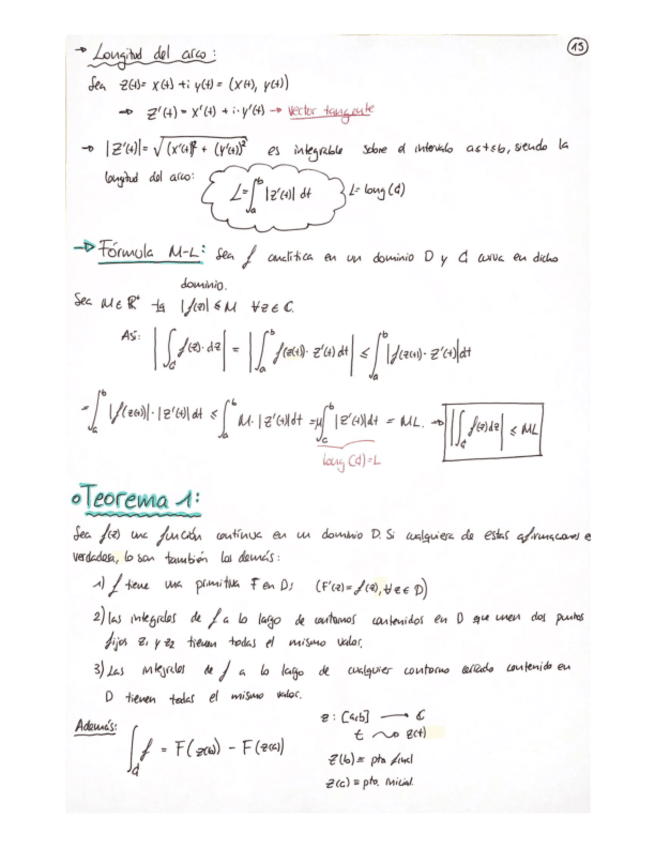 → Longitud del arco: 15
Sea z(t) = x(t) + i y(t) = (x(t), y(t))
→ z'(t) = x'(t) + i·y'(t) → vector tangente
→ |z'(t)| = √((x'(t))² + (y'(t))²) es integrable sobre el intervalo a≤t≤b, siendo la
longitud del arco: L = ∫_a^b |z'(t)| dt L = long(C)
→ Fórmula M-L: Sea f analítica en un dominio D y C curva en dicho
dominio.
Sea M ∈ ℝ⁺ tq |f(z)| ≤ M ∀z ∈ C.
Así: |∫_C f(z)·dz| = |∫_a^b f(z(t))·z'(t) dt| ≤ ∫_a^b |f(z(t))·z'(t)| dt
= ∫_a^b |f(z(t))|·|z'(t)| dt ≤ ∫_a^b M·|z'(t)| dt = M ∫_c^b |z'(t)| dt = ML. → |∫_C f(z)dz| ≤ ML
long(C) = L
o Teorema 1:
Sea f(z) una función continua en un dominio D. Si cualquiera de estas afirmaciones e
verdadera, lo son también las demás:
1) f tiene una primitiva F en D; (F'(z) = f(z), ∀z ∈ D)
2) las integrales de f a lo largo de contornos contenidos en D que unen dos puntos
fijos z₁ y z₂ tienen todas el mismo valor.
3) Las integrales de f a lo largo de cualquier contorno cerrado contenido en
D tienen todas el mismo valor.
Además: ∫_C f = F(z(b)) - F(z(a))
z: [a,b] → ℂ
t ⇝ z(t)
z(b) = pto final
z(a) = pto. inicial.